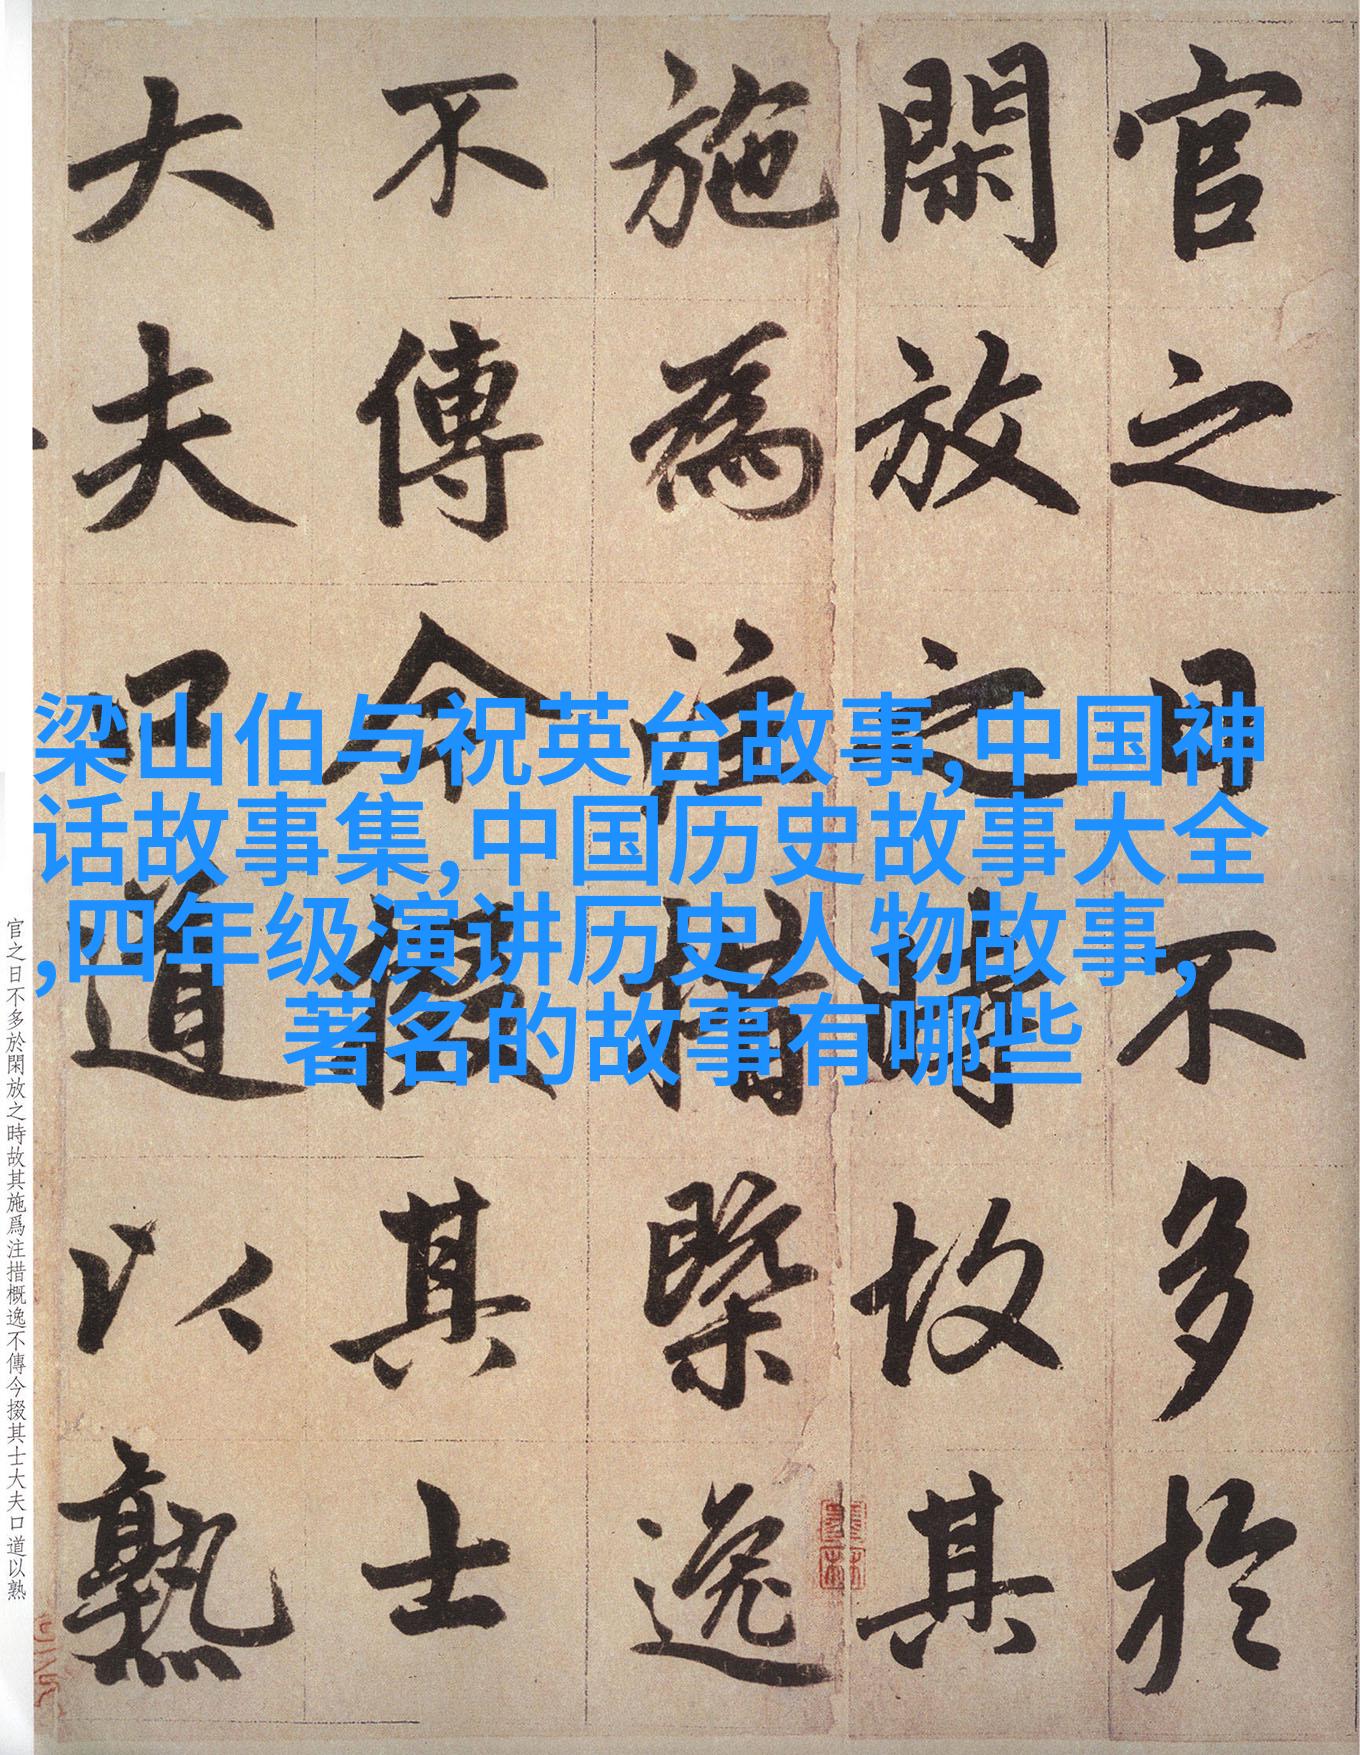 官之日不多於
閑放之時故其
施為注措槩逸
不傳今掇其士
大夫口道以熟
梁山伯与祝英台故事,中国神
话故事集,中国历史故事大全
,四年级演讲历史人物故事,
著名的故事有哪些
官之日不多於閑放之時故其施爲注措概逸不傳今掇其士大夫口道以熟